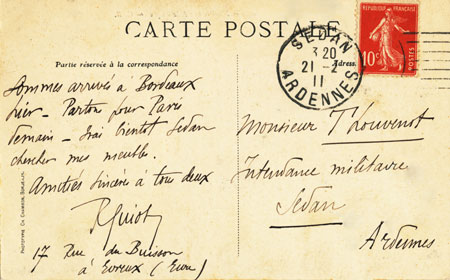 CARTE POSTALE
Partie réservée à la correspondance
Adresse
Sommes arrivés à Bordeaux
hier – Partons pour Paris
demain – Irai bientôt Sedan
chercher mes meubles.
Amitiés sincères à tous deux
17 Rue du Buisson
à Evreux (Eure)
SEDAN
3 20
21 - 2
11
ARDENNES
RÉPUBLIQUE FRANÇAISE
10
POSTES
Monsieur Thouvenot
Intendance militaire
Sedan
Ardennes